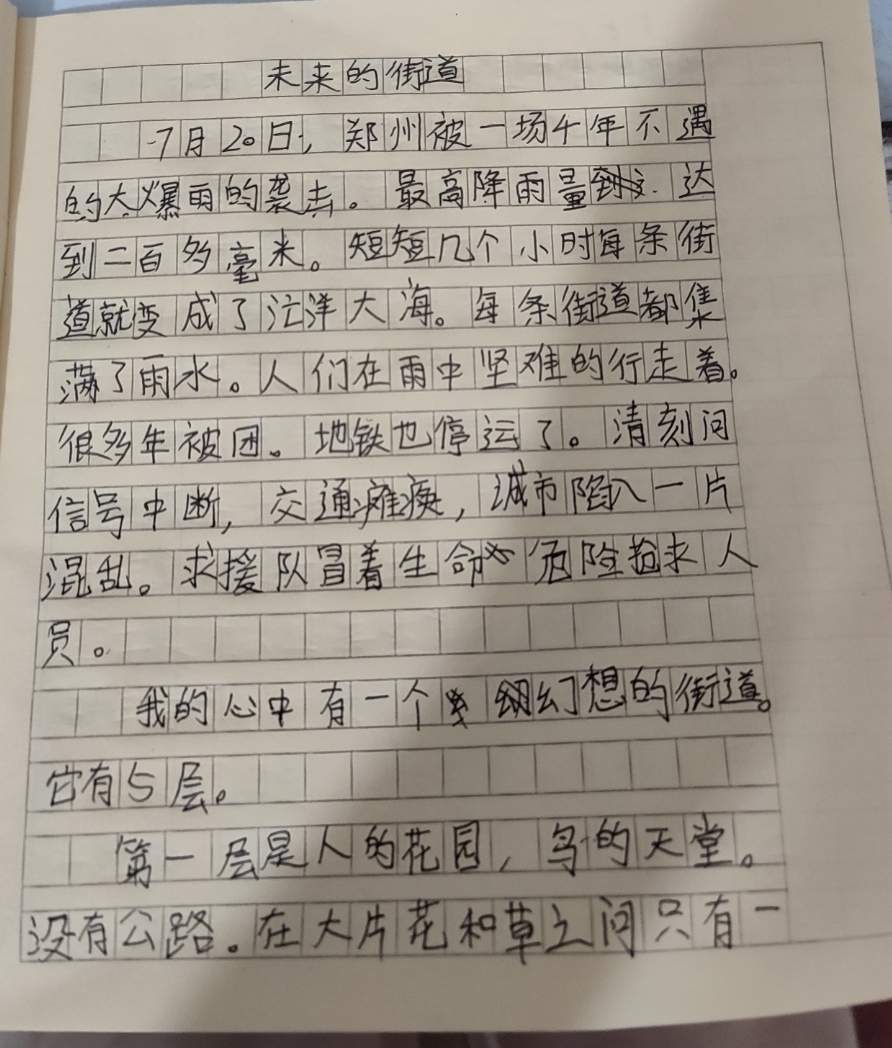 未来的街道
7月20日，郑州被一场千年不遇
的大爆雨的袭击。最高降雨量达
到二百多毫米。短短几个小时每条街
道就变成了汪洋大海。每条街道都集
满了雨水。人们在雨中坚难的行走着。
很多年被困。地铁也停运了。清刻间
信号中断，交通瘫痪，城市陷入一片
混乱。求援队冒着生命危险抢求人
员。
我的心中有一个幻想的街道。
它有5层。
第一层是人的花园，鸟的天堂。
没有公路。在大片花和草之间只有一